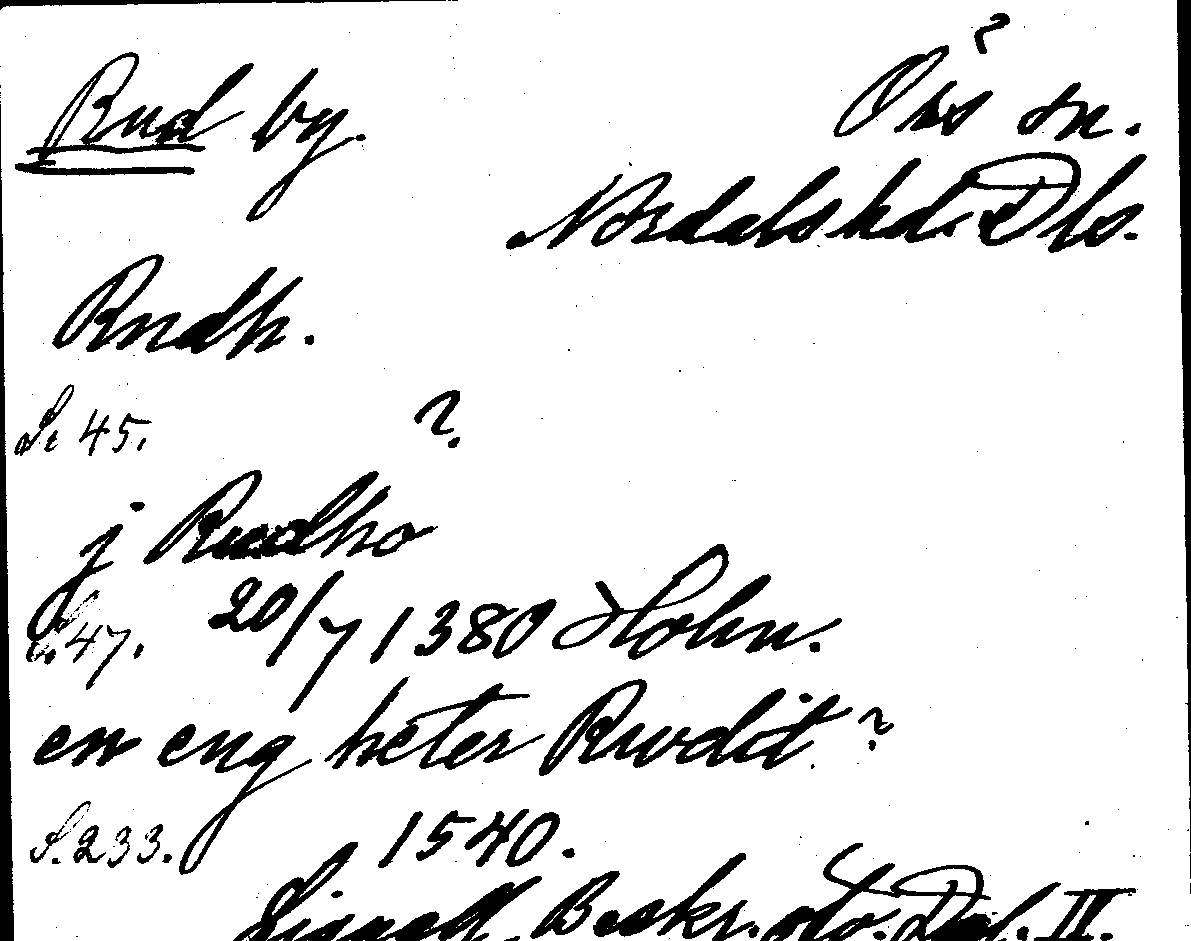 ?
Rud by. Örs sn.
Nordals hd. Dls.
Rudh.
S. 45. ?
j Rudho
S. 47. 20/7 1380 Holm.
en eng heter Rwdit ?
S. 233. 1540.
Lignell, Beskr. ofv. Dal. II.